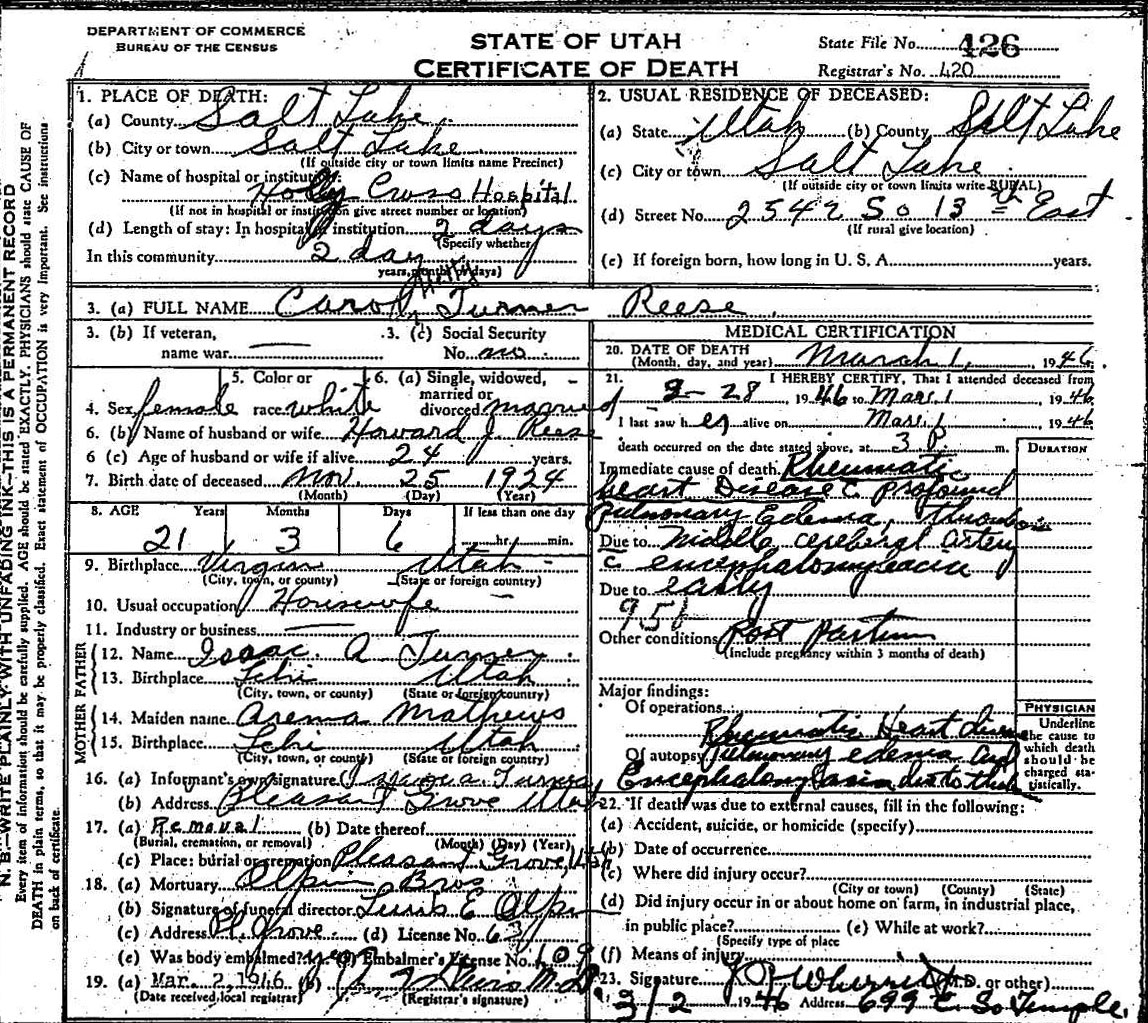 DEPARTMENT OF COMMERCE
BUREAU OF THE CENSUS
STATE OF UTAH
CERTIFICATE OF DEATH
State File No. 426
Registrar's No. 420
N. B.—WRITE PLAINLY WITH UNFADING INK—THIS IS A PERMANENT RECORD
Every item of information should be carefully supplied. AGE should be stated EXACTLY. PHYSICIANS should state CAUSE OF
DEATH in plain terms, so that it may be properly classified. Exact statement of OCCUPATION is very important. See instructions
on back of certificate.
1. PLACE OF DEATH:
(a) County Salt Lake
(b) City or town Salt Lake
(If outside city or town limits name Precinct)
(c) Name of hospital or institution:
Holy Cross Hospital
(If not in hospital or institution give street number or location)
(d) Length of stay: In hospital or institution 2 days
(Specify whether
In this community 2 day
years, months or days)
2. USUAL RESIDENCE OF DECEASED:
(a) State Utah (b) County Salt Lake
(c) City or town Salt Lake
(If outside city or town limits write RURAL)
(d) Street No. 2542 So 13th East
(If rural give location)
(e) If foreign born, how long in U. S. A. years.
3. (a) FULL NAME Carol Turner Reese
3. (b) If veteran,
name war
3. (c) Social Security
No. no
4. Sex female
5. Color or
race white
6. (a) Single, widowed,
married or
divorced married
6. (b) Name of husband or wife Howard J. Reese
6 (c) Age of husband or wife if alive 24 years.
7. Birth date of deceased Nov. 25 1924
(Month) (Day) (Year)
8. AGE Years Months Days If less than one day
21 3 6 hr. min.
9. Birthplace Virgin Utah
(City, town, or county) (State or foreign country)
10. Usual occupation Housewife
11. Industry or business
FATHER
12. Name Isaac A Turner
13. Birthplace Lehi Utah
(City, town, or county) (State or foreign country)
MOTHER
14. Maiden name Arema Mathews
15. Birthplace Lehi Utah
(City, town, or county) (State or foreign country)
16. (a) Informant's own signature Turner
(b) Address Pleasant Grove Utah
17. (a) Removal (b) Date thereof
(Burial, cremation, or removal) (Month) (Day) (Year)
(c) Place: burial or cremation Pleasant Grove, Utah
18. (a) Mortuary Olpin Bros
(b) Signature of funeral director E Olpin
(c) Address Pl. Grove (d) License No. 637
(e) Was body embalmed? yes (f) Embalmer's License No. 109
19. (a) Mar. 2, 1946 (b) M.D.
(Date received local registrar) (Registrar's signature)
MEDICAL CERTIFICATION
20. DATE OF DEATH
(Month, day, and year) March 1, 1946
21. I HEREBY CERTIFY, That I attended deceased from
2-28, 1946 to Mar. 1 1946
I last saw her alive on Mar. 1 1946
death occurred on the date stated above, at 3 P m.
DURATION
Immediate cause of death Rheumatic
heart Disease c profound
Pulmonary Edema, thrombosis
Due to Middle cerebral artery
c encephalomyelacia
Due to early
95b
Other conditions Post Partum
(Include pregnancy within 3 months of death)
Major findings:
Of operations
Rheumatic Heart disease
Of autopsy pulmonary edema and
Encephalomylasia due to
PHYSICIAN
Underline
the cause to
which death
should be
charged sta-
tistically.
22. If death was due to external causes, fill in the following:
(a) Accident, suicide, or homicide (specify)
(b) Date of occurrence
(c) Where did injury occur?
(City or town) (County) (State)
(d) Did injury occur in or about home on farm, in industrial place,
in public place? (e) While at work?
(Specify type of place
(f) Means of injury
23. Signature (M.D. or other)
3/2 1946 Address 699 E. So Temple.